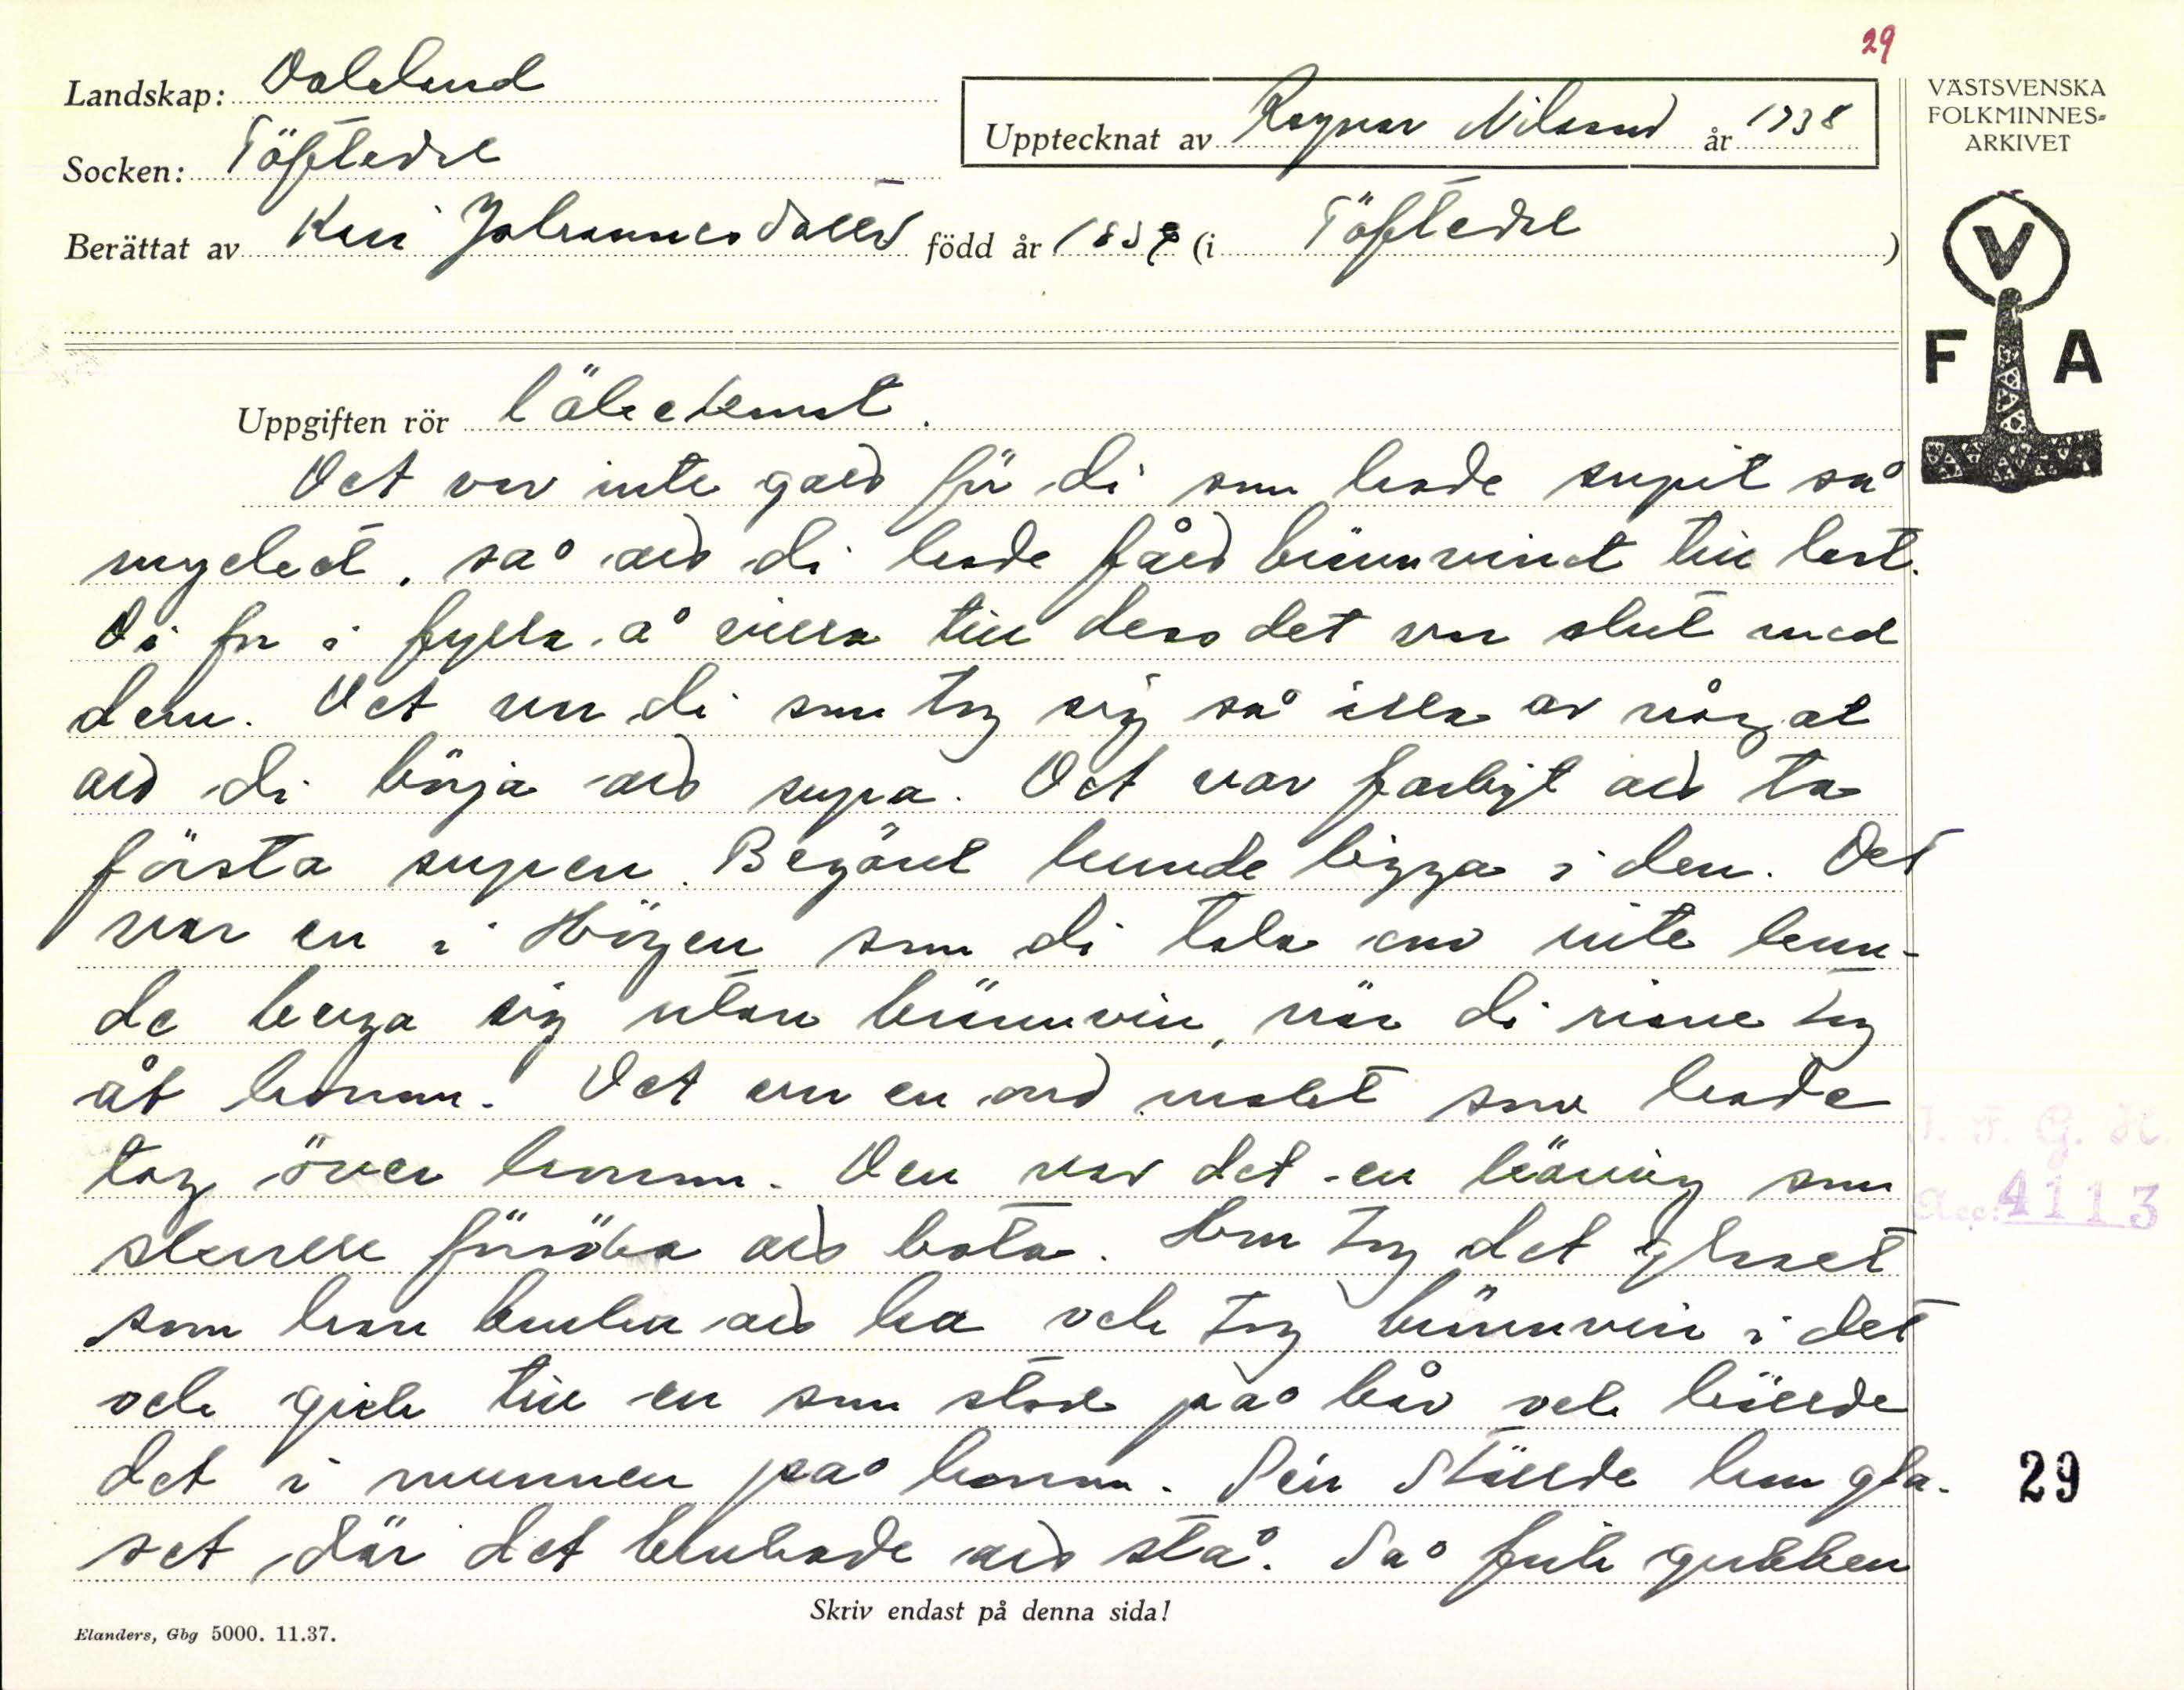 29
Landskap: Dalsland
Upptecknat av Ragnar Nilsson år 1938
VÄSTSVENSKA
FOLKMINNES-
ARKIVET
Socken: Töftedal
Berättat av Kari Johannesdotter född år 185 (i Töftedal )
V
F A
Uppgiften rör läkekonst.
Det var inte gott för di som hade supit så
mycket, så att di hade fått brännvinet till last.
Di for i fylla å villa till dess det var slut med
dem. Det var di som tog sig så illa av något
att di börja att supa. Det var farligt att ta
första supen. Begäret kunde ligga i den. Det
var en i Högen som di tala om inte kun-
de berga sig utan brännvin, när di riane tog
åt honom. Det var en ond makt som hade
tag över honom. Den var det en käring som
skulle försöka att bota. Hon tog det glaset
som han bruka att ha och tog brännvin i det
och gick till en som stod på bår och hällde
det i munnen på honom. Sen ställde hon gla-
set där det brukade att stå. Så fick gubben
J. F. G. H.
Acc: 4113
29
Skriv endast på denna sida!
Elanders, Gbg 5000. 11.37.